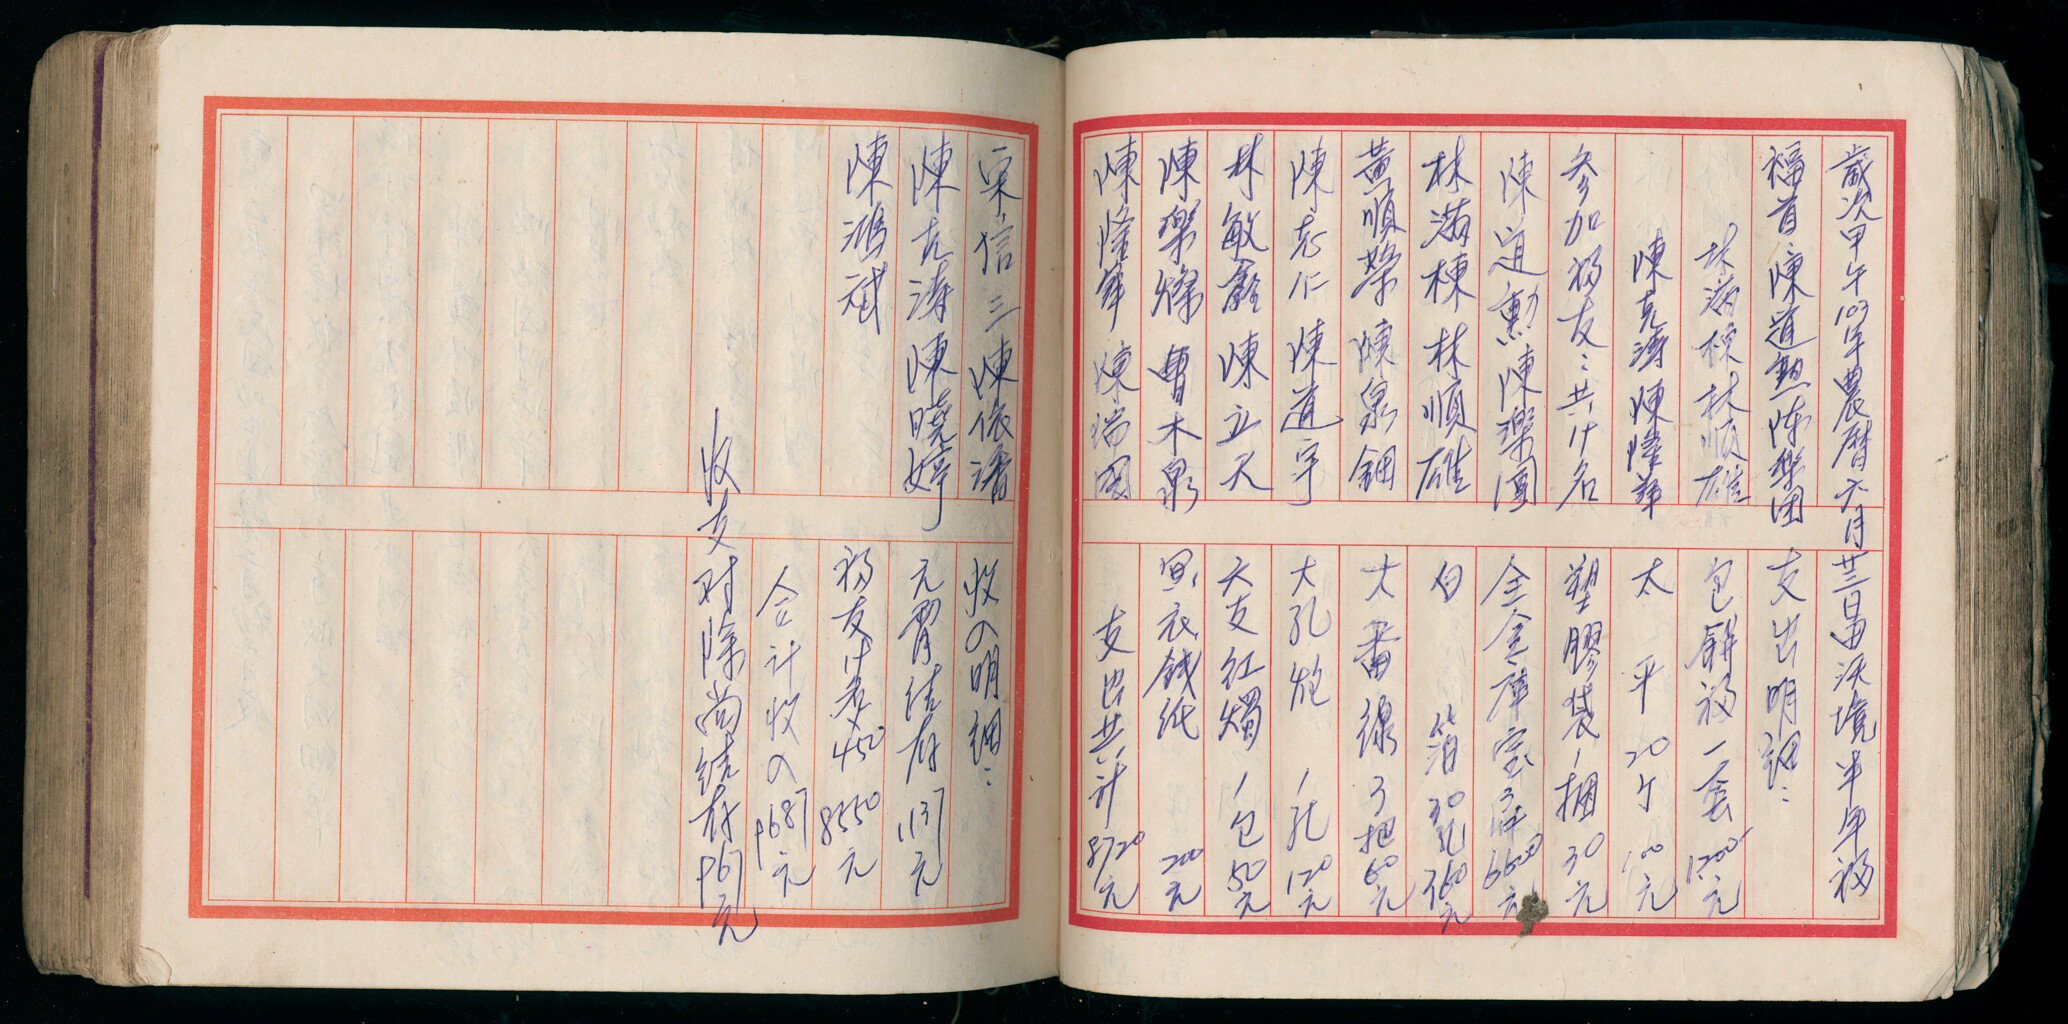 歲次甲午103年農曆六月廿三日田沃境半年福
福首:陳道勲 陈樂团
林滿棟 林順雄
陳克濤 陳隆華
參加福友:共廿名
陳道勳 陳樂團
林滿棟 林順雄
黃順榮 陳泉鈿
陳志仁 陳道宇
林敏 陳立天
陳樂燦 曹木泉
陳隆華 陳瑞國
支出明細:
包餅福一套 1200元
太平 20斤 100元
塑膠袋1捆 30元
全金庫宝3件 6600元
白箔 30孔 360元
大番線3把 60元
大孔炮 1孔 120元
大支紅燭 1包 50元
衣錢紙 200元
支出共計 8720元
宋信三 陳依
陳克濤 陳曉婷
陳鴻斌
收入明細:
元宵結存 1137元
福友 450 8550元
合計收入 9687元
收支对除尚結存 967元